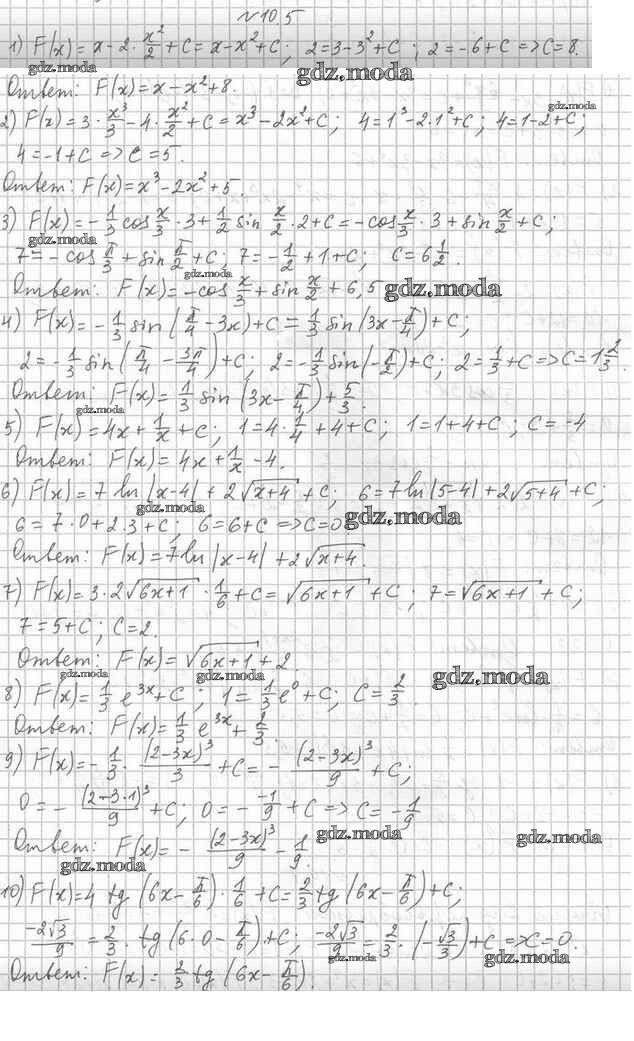 №10.5
1) F(x) = x - 2 · x²/2 + C = x - x² + C; 2 = 3 - 3² + C; 2 = -6 + C => C = 8.
gdz.moda gdz.moda
Ответ: F(x) = x - x² + 8.
gdz.moda
2) F(x) = 3 · x³/3 - 4 · x²/2 + C = x³ - 2x² + C; 4 = 1³ - 2·1² + C; 4 = 1 - 2 + C;
4 = -1 + C => C = 5.
Ответ: F(x) = x³ - 2x² + 5.
3) F(x) = -1/3 cos x/3 · 3 + 1/2 sin x/2 · 2 + C = -cos x/3 · 3 + sin x/2 + C;
gdz.moda
7 = -cos π/3 + sin π/2 + C; 7 = -1/2 + 1 + C; C = 6 1/2.
gdz.moda
Ответ: F(x) = -cos x/3 + sin x/2 + 6,5 gdz.moda
4) F(x) = -1/3 sin(π/4 - 3x) + C = 1/3 sin(3x - π/4) + C;
2 = -1/3 sin(π/4 - 3π/4) + C; 2 = -1/3 sin(-π/2) + C; 2 = 1/3 + C => C = 1 2/3.
Ответ: F(x) = 1/3 sin(3x - π/4) + 5/3.
gdz.moda
5) F(x) = 4x + 1/x + C; 1 = 4 · 1/4 + 4 + C; 1 = 1 + 4 + C; C = -4
Ответ: F(x) = 4x + 1/x - 4.
6) F(x) = 7 ln|x-4| + 2√(x+4) + C; 6 = 7 ln|5-4| + 2√(5+4) + C;
gdz.moda
6 = 7 · 0 + 2·3 + C; 6 = 6 + C => C = 0 gdz.moda
Ответ: F(x) = 7 ln|x-4| + 2√(x+4).
7) F(x) = 3 · 2√(6x+1) · 1/6 + C = √(6x+1) + C; 7 = √(6x+1) + C;
7 = 5 + C; C = 2.
Ответ: F(x) = √(6x+1) + 2.
gdz.moda gdz.moda gdz.moda
8) F(x) = 1/3 e³ˣ + C; 1 = 1/3 e⁰ + C; C = 2/3.
Ответ: F(x) = 1/3 e³ˣ + 2/3.
9) F(x) = -1/3 · (2-3x)³/3 + C = -(2-3x)³/9 + C;
0 = -(2-3·1)³/9 + C; 0 = - -1/9 + C => C = -1/9
gdz.moda gdz.moda
Ответ: F(x) = -(2-3x)³/9 - 1/9.
gdz.moda
10) F(x) = 4 tg(6x - π/6) · 1/6 + C = 2/3 tg(6x - π/6) + C;
-2√3/9 = 2/3 · tg(6·0 - π/6) + C; -2√3/9 = 2/3 · (-√3/3) + C => C = 0.
gdz.moda gdz.moda
Ответ: F(x) = 2/3 tg(6x - π/6).